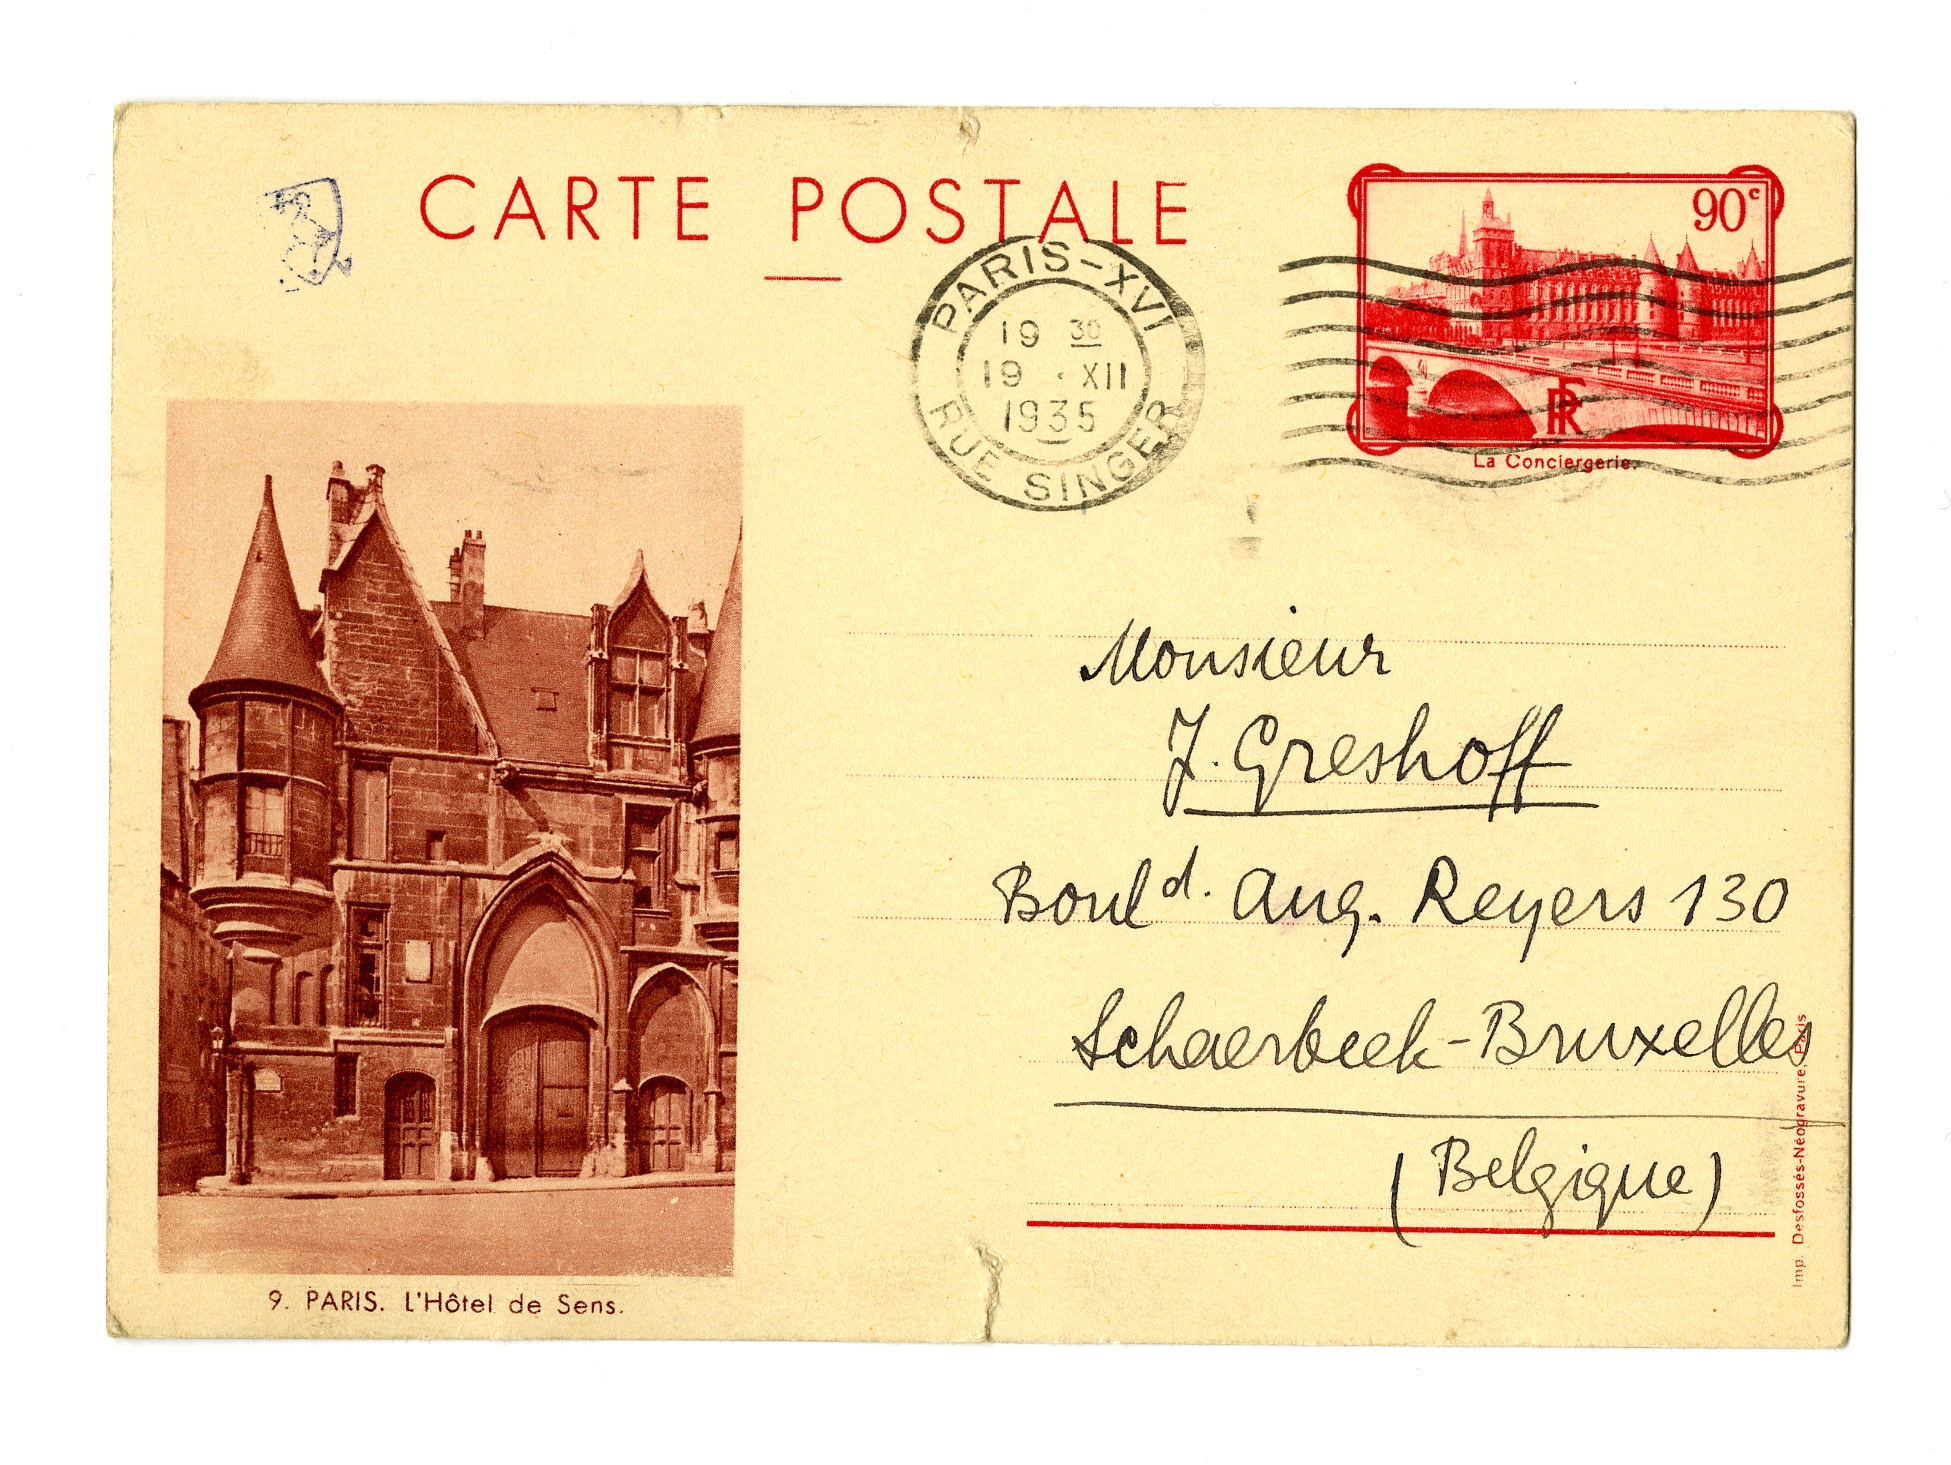 CARTE POSTALE
90c
RF
La Conciergerie.
PARIS-XVI
19 30
19 · XII
1935
RUE SINGER
Monsieur
J. Greshoff
Boul d. Aug. Reyers 130
Schaerbeek-Bruxelles
(Belgique)
9. PARIS. L'Hôtel de Sens.
Imp. Desfossés-Néogravure, Paris